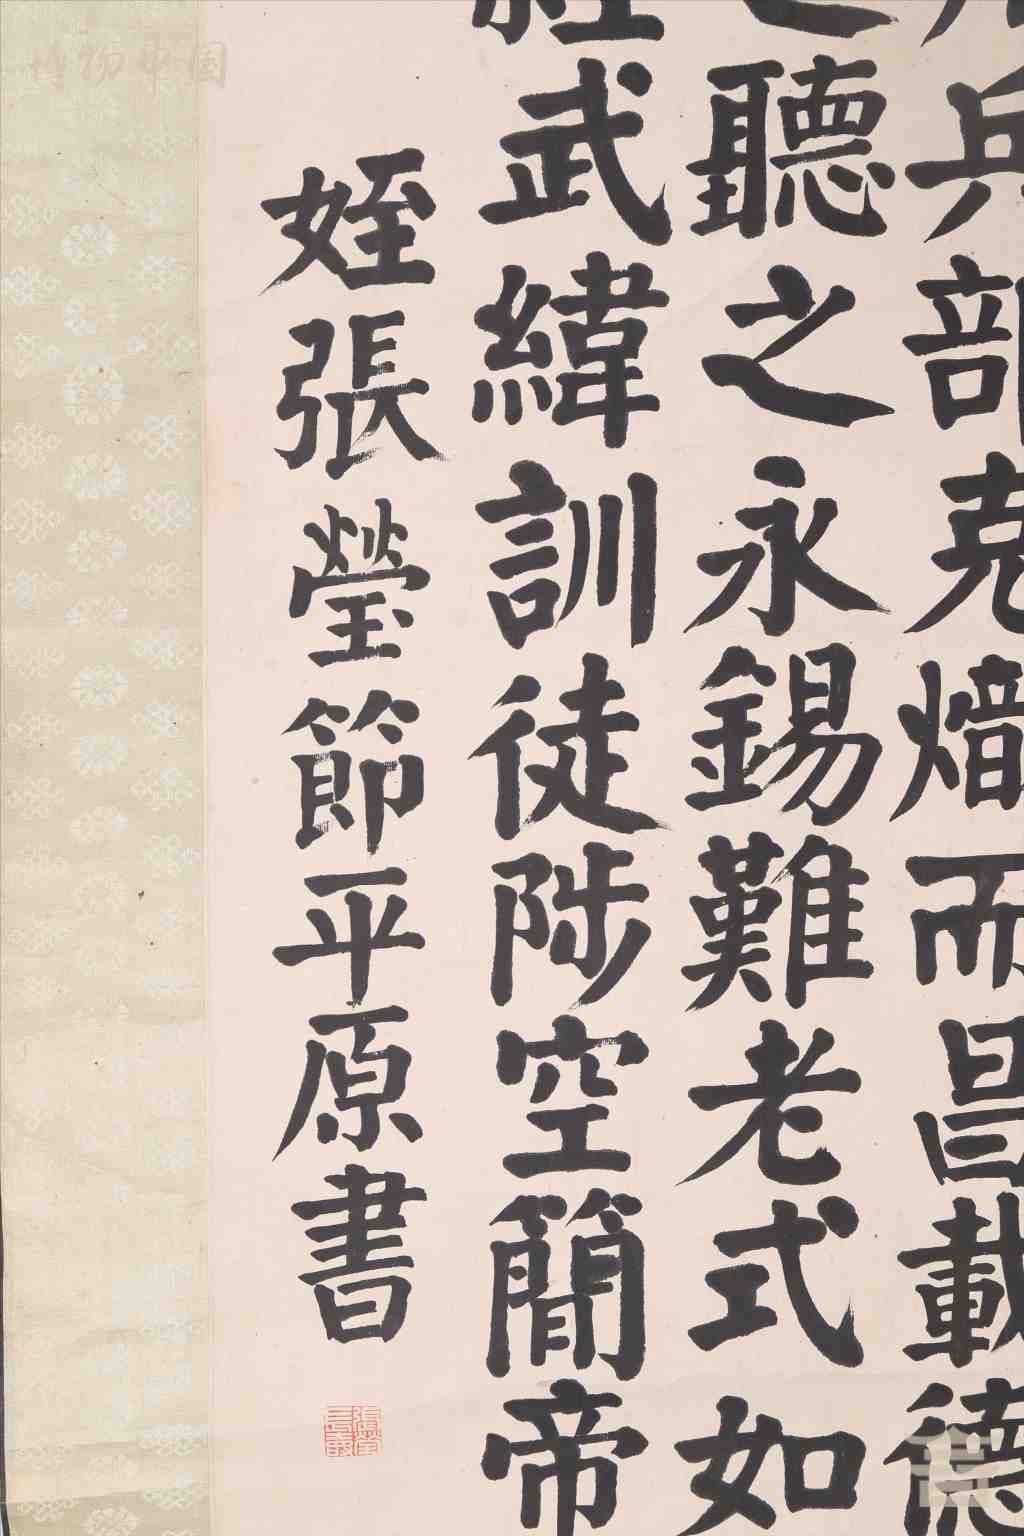 兵部堯熺而昌載德
之聽之永錫難老式如
經武緯訓徒陟空簡帝
姪張瑩節平原書
博物中国